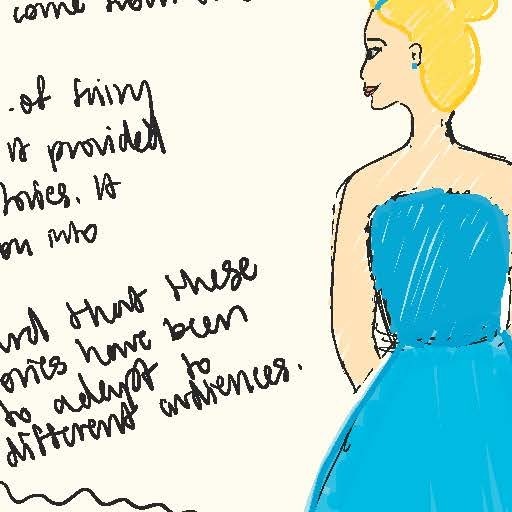 come from
. of fairy
it provided
tories. It
on into
nd that these
ories have been
to adapt to
different audiences.